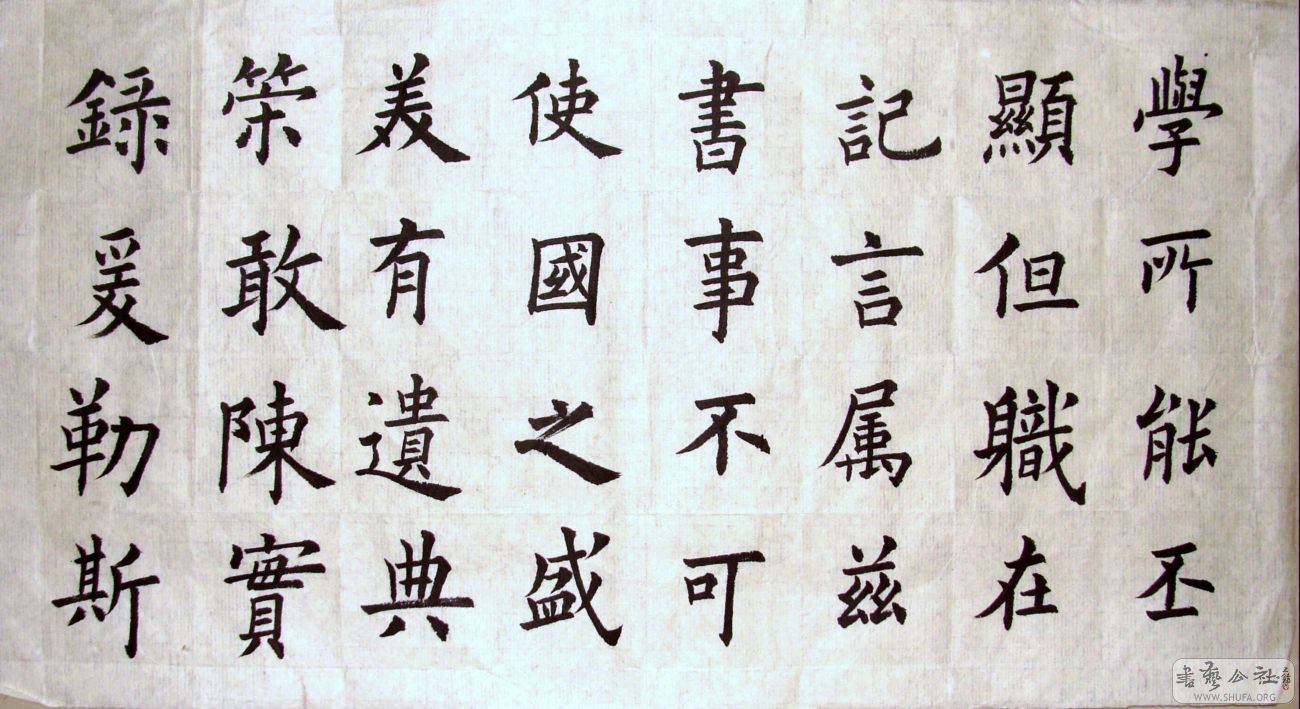 學所能丕
顯但職在
記言属兹
書事不可
使國之盛
美有遺典
策敢陳實
録爰勒斯
書藝公社
WWW.SHUFA.ORG